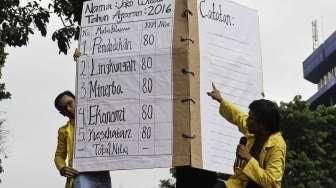 Nama: Joko Wido
Tahun Ajaran: 2016
No Mata Pelajaran KKM Nilai
1 Pendidikan 80
2 Lingkungan 80
3 Minerba 80
4 Ekonomi 80
5 Kesehatan 80
- Total Nilai - -
Catatan: